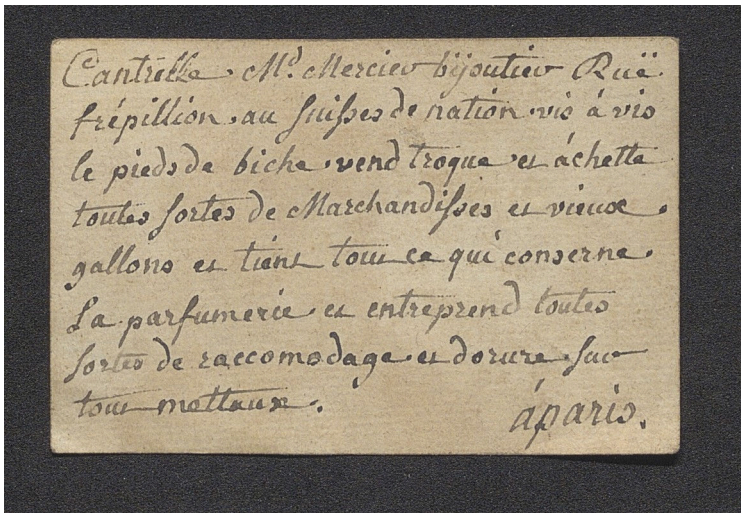 Cantrelle M.d Mercier bijoutier Ruë
frépillion au suisses de nation vis á vis
le pieds de biche vend troque et áchette
toutes sortes de Marchandisses et vieux
gallons et tiens tout ce qui conserne
La parfumerie et entreprend toutes
sortes de raccomodage et dorure sur
tout mettaux.
áparis.